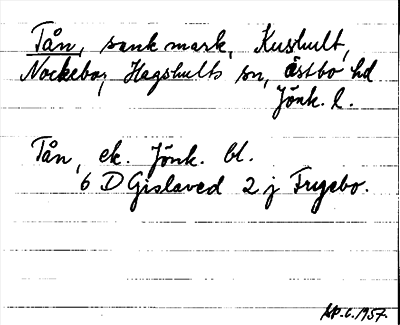 Tån, sank mark, Kushult,
Nockebo, Hagshults sn, Östbo hd
Jönk. l.
Tån, ek. Jönk. bl.
6 D Gislaved 2 j Fryebo.
1957.